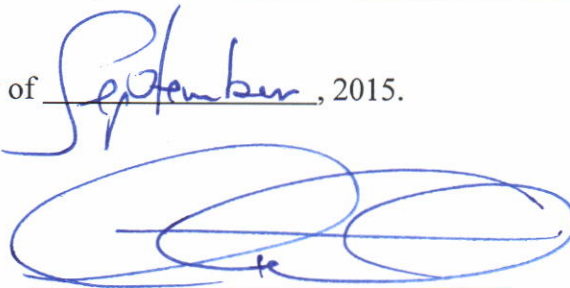 of September, 2015.